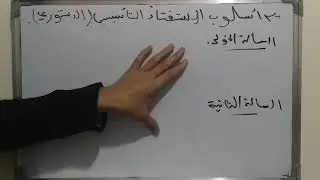 ٣- أسلوب الاستفتاء التأسيسي (الدستوري).
الحالة الأولى.
الحالة الثانية